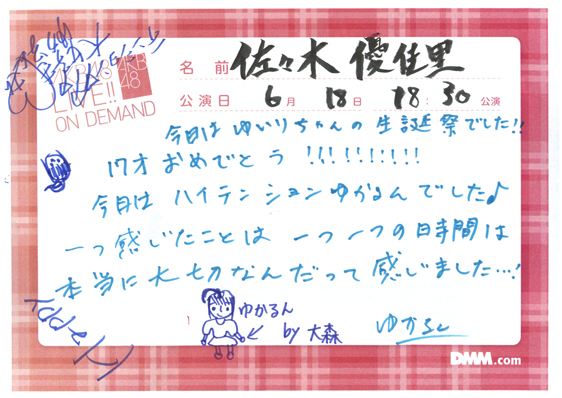 AKB48
AKB48
LIVE!!
ON DEMAND
名 前 佐々木 優佳里
公演日 6月 18日 18:30 公演
今日は ゆいりちゃんの 生誕祭でした!!
17才 おめでとう !!!!!!!!!!
今日は ハイテンションゆかるんでした♪
一つ感じたことは 一つ一つの時間は
本当に大切なんだって 感じました…!
Happy
ゆかるん
by 大森
ゆかるん
DMM.com